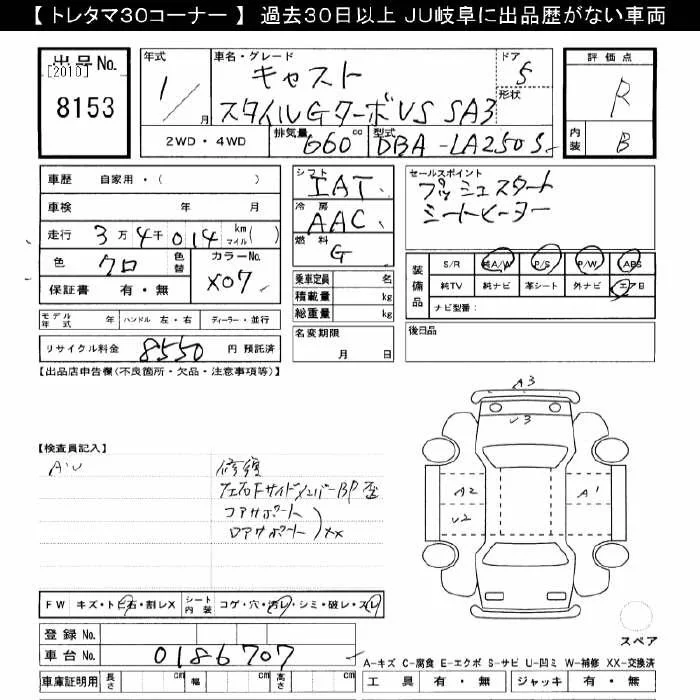 【 トレタマ30コーナー 】 過去30日以上 JU岐阜に出品歴がない車両
出品No.
[2010]
8153
年式
1/
月
車名・グレード
キャスト
スタイルGターボVS SA3
ドア
5
形状
評価点
R
内装
B
2WD・4WD
排気量
660
cc
型式
DBA-LA250S
車歴 自家用・( )
車検 年 月
走行 3万4千014
km
マイル
色 クロ
色替
カラーNo.
X07
保証書 有・無
シフト
IAT
冷房
AAC
燃料
G
乗車定員 名
積載量 kg
総重量 kg
セールスポイント
プッシュスタート
シートヒーター
装備品
S/R 純A/W P/S P/W ABS
純TV 純ナビ 革シート 外ナビ エアB
ナビ型番:
モデル年式 年 ハンドル 左・右 ディーラー・並行
リサイクル料金 8550 円 預託済
名変期限
月 日
後日品
【出品店申告欄(不良箇所・欠品・注意事項等)】
【検査員記入】
A・U
修復
左右Fサイドメンバー BP歪
コアサポート
ロアサポート
XX
A3
U3
A2
U2
A1
スペア
FW キズ・トビ石・割レX
シート内装 コゲ・穴・汚レ・シミ・破レ・スレ
登録No.
車台No. 0186707
車庫証明用 長さ cm 幅 cm 高さ cm
A-キズ C-腐食 E-エクボ S-サビ U-凹ミ W-補修 XX-交換済
工具 有・無 ジャッキ 有・無